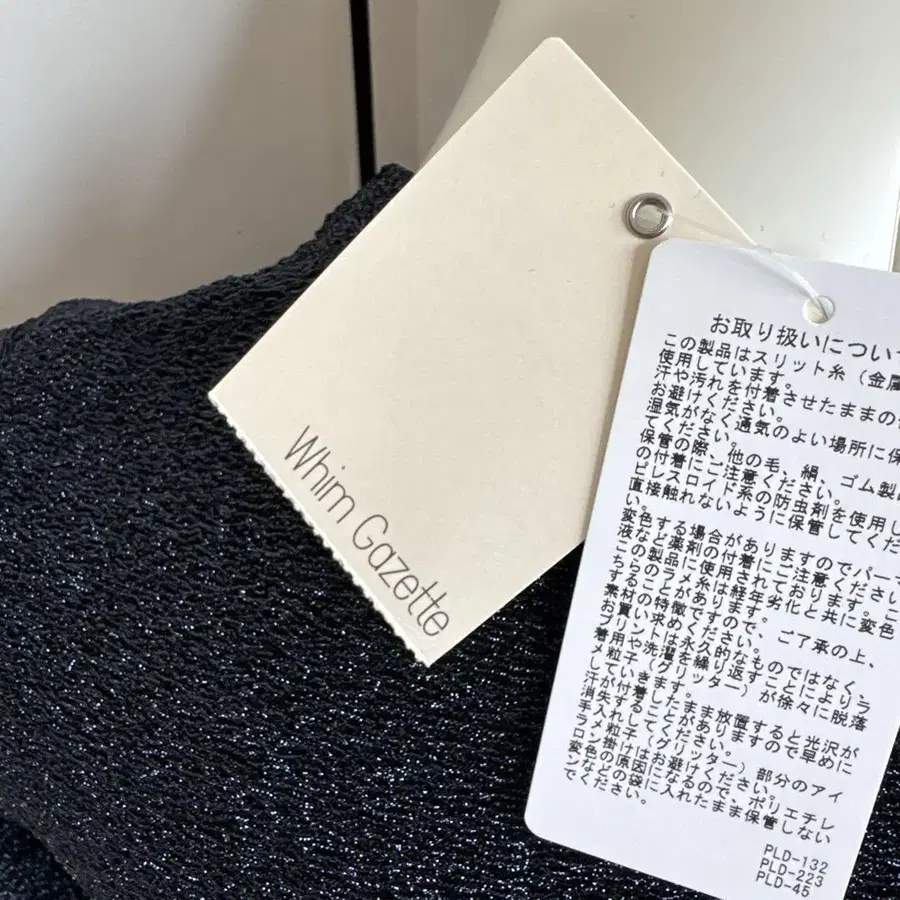 Whim Gazette
お取り扱いについ
この製品はスリット糸（金属
使用しています。
汗や汚れを付着させたままの
お避けください。
湿気がなく通気のよい場所に保
てください。
保管の際、他の毛、絹、ゴム製
の付着にご注意ください。
ピレスロイド系の防虫剤を使用し
直接触れないように保管してくだ
い。
変色する場合がありますのでパーマ
液など薬剤の付着にご注意ください
こちらの製品に使用されております。こ
ちらのラメ糸は経年劣化と共に変色
することがあります。
素材の特徴ですので、ご了承の上、
お買い求めください。
プリントは永久的なものではなく、
着用や洗濯を繰り返すことによりラ
メ粒子（グリッター）が徐々に脱落
していきます。
汗が付着したまま放置すると光沢が
消失することがありますので早めに
手入れしてください。
ラメ粒子（グリッター）部分のアイ
ロン掛けはお避けください。
変色の原因になるので、ポリエチレ
ンなどの袋に入れたまま保管しない
で
PLD-132
PLD-223
PLD-45